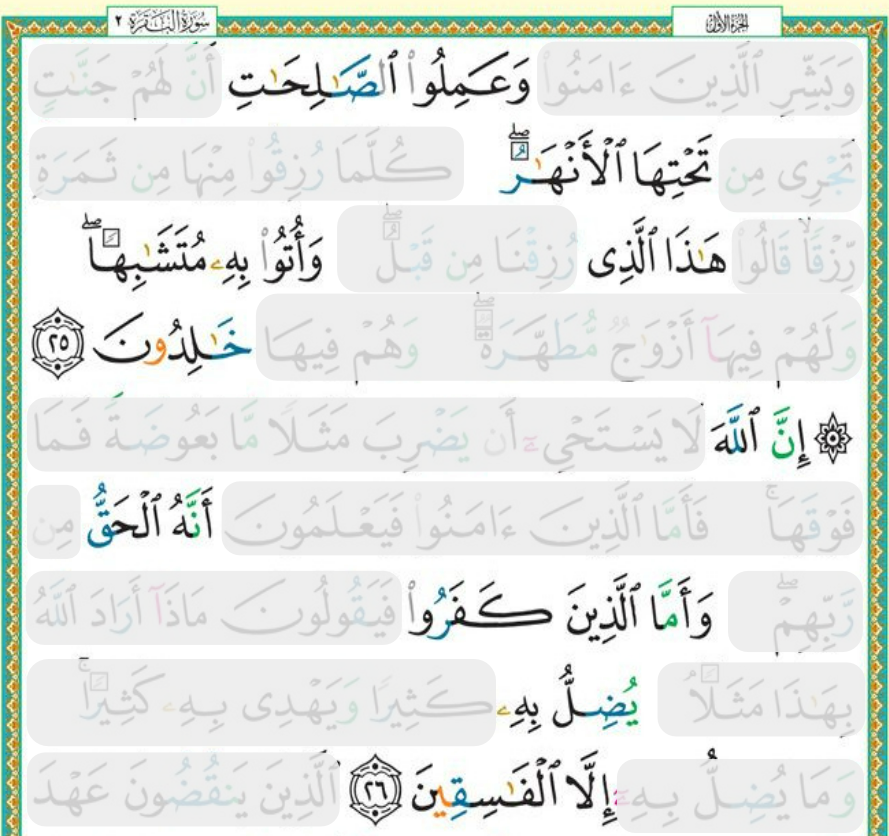 سُورَةُ الْبَقَرَةِ ٢ الجزء الأول
وَبَشِّرِ ٱلَّذِينَ ءَامَنُوا۟ وَعَمِلُوا۟ ٱلصَّـٰلِحَـٰتِ أَنَّ لَهُمْ جَنَّـٰتٍ
تَجْرِى مِن تَحْتِهَا ٱلْأَنْهَـٰرُ ۖ كُلَّمَا رُزِقُوا۟ مِنْهَا مِن ثَمَرَةٍ
رِّزْقًا ۙ قَالُوا۟ هَـٰذَا ٱلَّذِى رُزِقْنَا مِن قَبْلُ ۖ وَأُتُوا۟ بِهِۦ مُتَشَـٰبِهًا ۖ
وَلَهُمْ فِيهَآ أَزْوَٰجٌ مُّطَهَّرَةٌ ۖ وَهُمْ فِيهَا خَـٰلِدُونَ ٢٥
۞ إِنَّ ٱللَّهَ لَا يَسْتَحْىِۦٓ أَن يَضْرِبَ مَثَلًا مَّا بَعُوضَةً فَمَا
فَوْقَهَا ۚ فَأَمَّا ٱلَّذِينَ ءَامَنُوا۟ فَيَعْلَمُونَ أَنَّهُ ٱلْحَقُّ مِن
رَّبِّهِمْ ۖ وَأَمَّا ٱلَّذِينَ كَفَرُوا۟ فَيَقُولُونَ مَاذَآ أَرَادَ ٱللَّهُ
بِهَـٰذَا مَثَلًا ۘ يُضِلُّ بِهِۦ كَثِيرًا وَيَهْدِى بِهِۦ كَثِيرًا ۚ
وَمَا يُضِلُّ بِهِۦٓ إِلَّا ٱلْفَـٰسِقِينَ ٢٦ ٱلَّذِينَ يَنقُضُونَ عَهْدَ